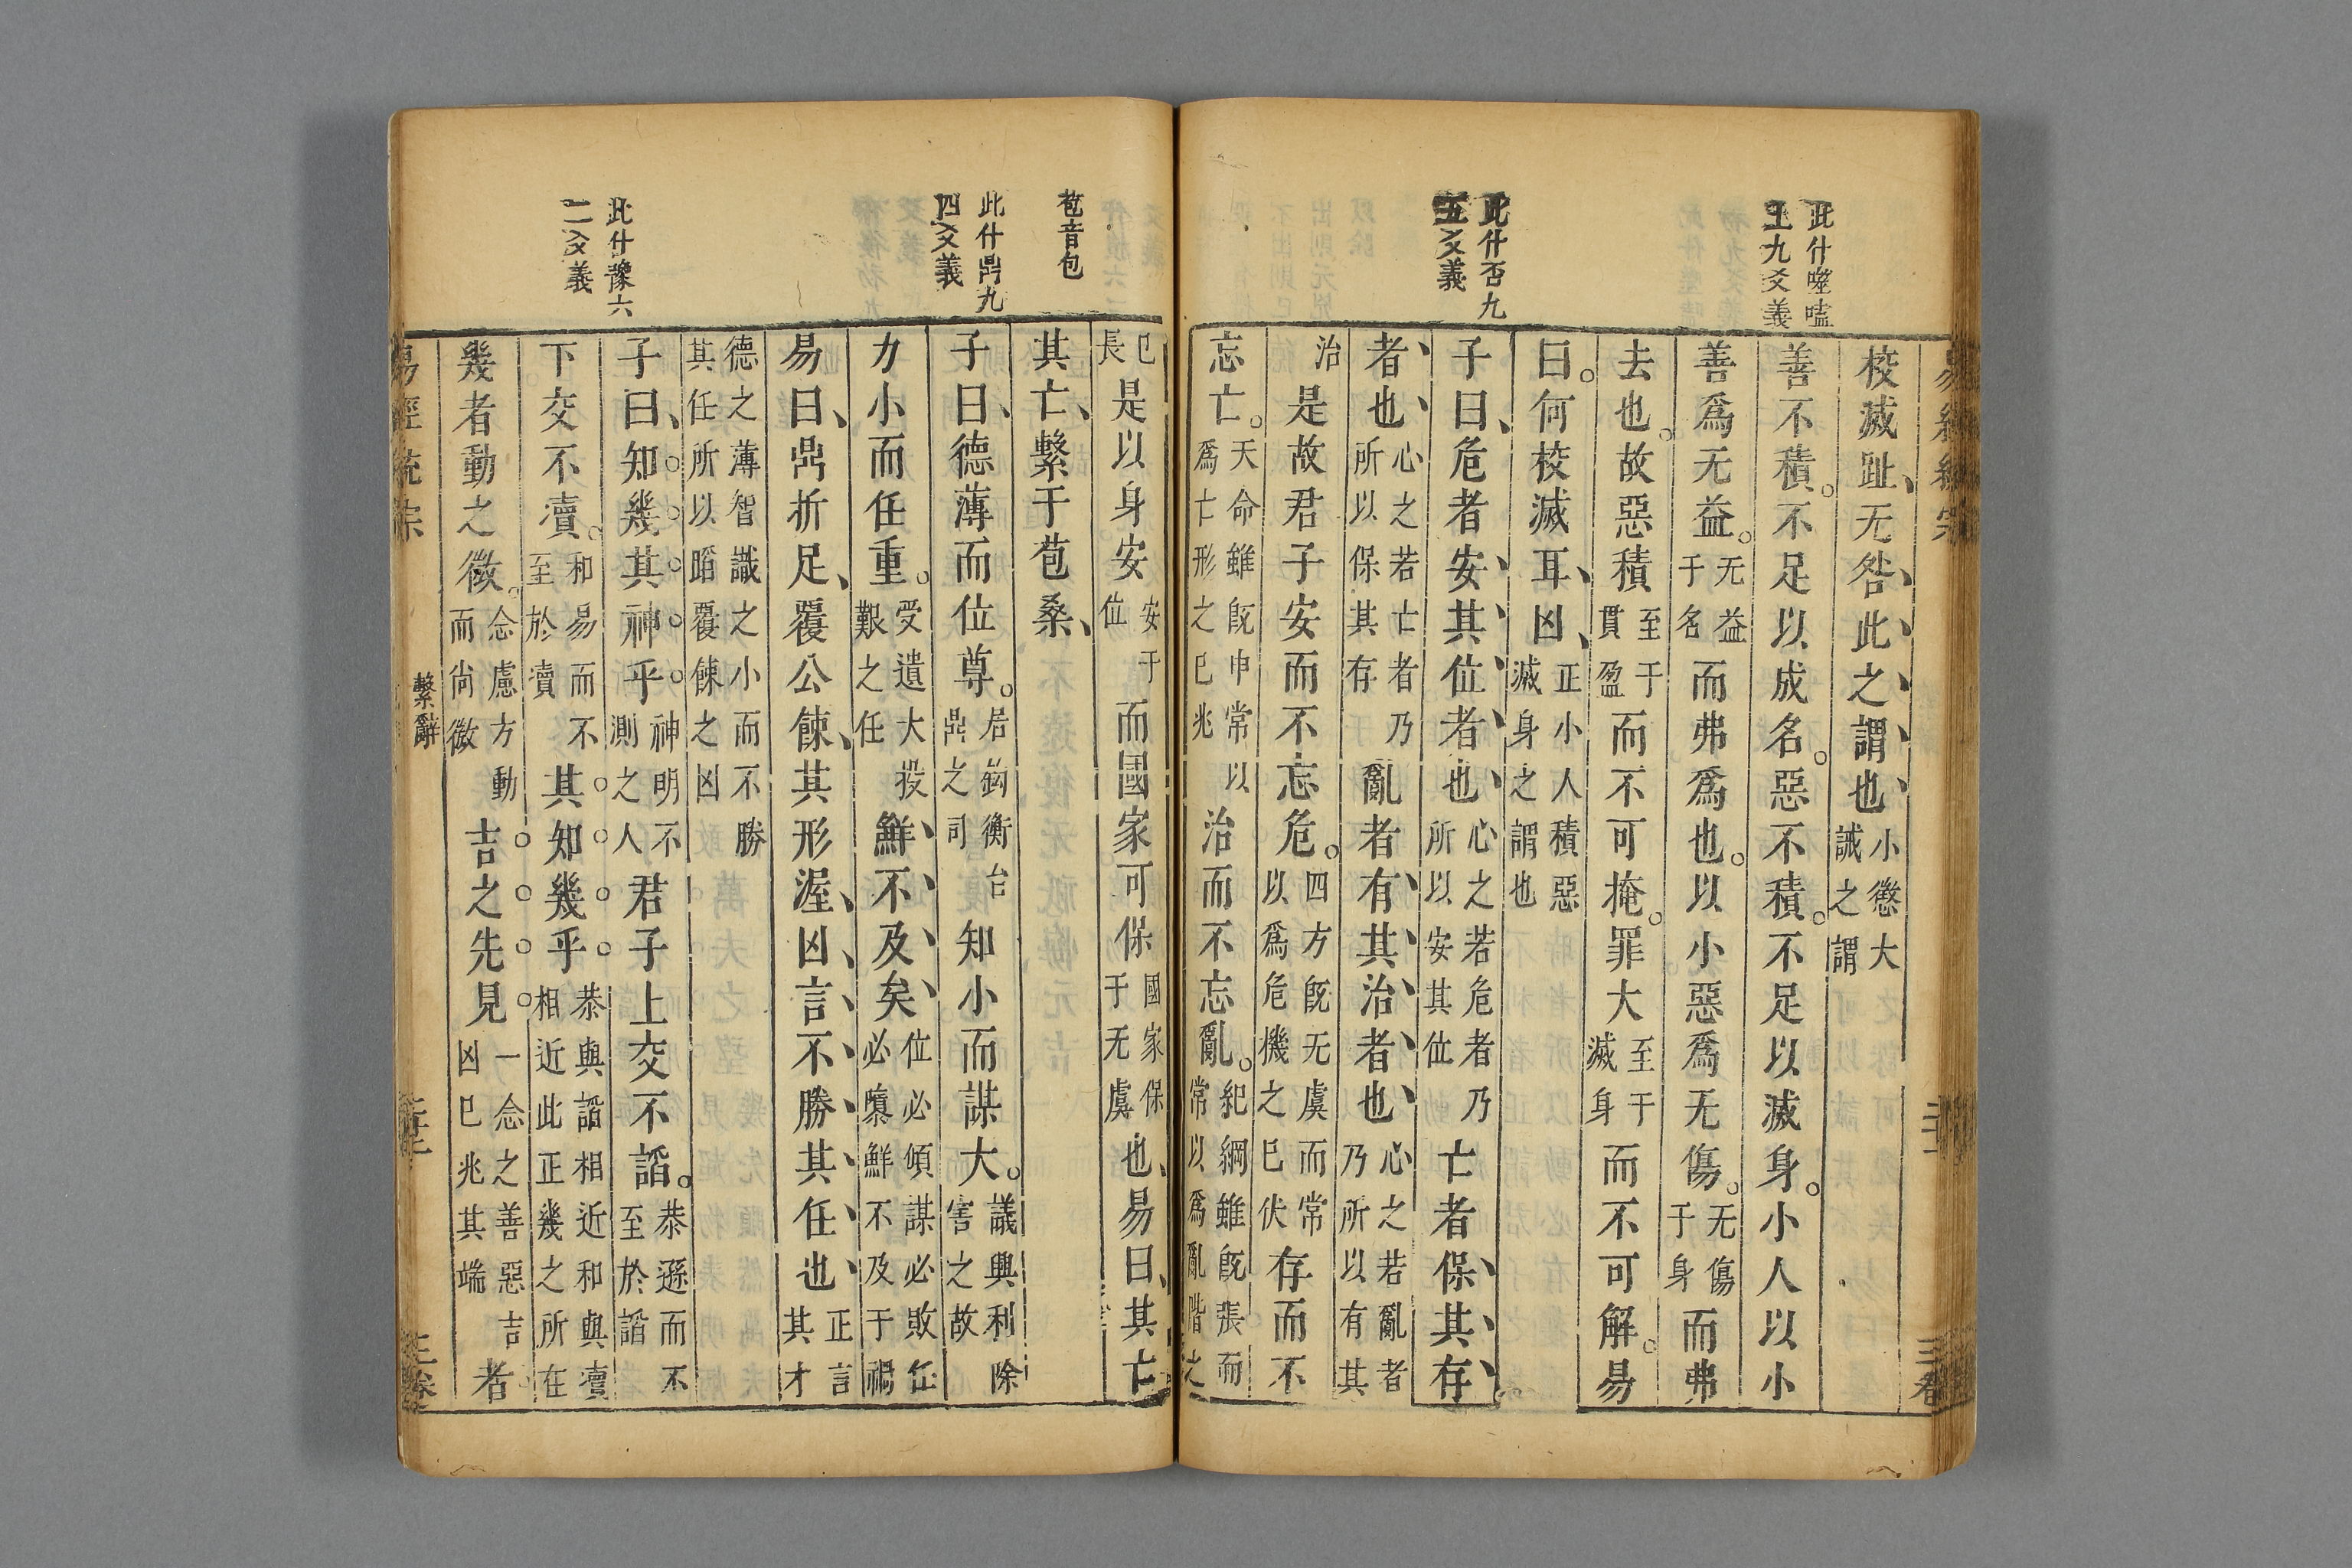 此什噬嗑
上九爻義
此什否九
五爻義
校滅趾无咎此之謂也小懲大
誡之謂
善不積不足以成名惡不積不足以滅身小人以小
善爲无益无益
于名而弗爲也以小惡爲无傷无傷
于身而弗
去也故惡積至于
貫盈而不可掩罪大至于
滅身而不可解易
曰何校滅耳凶正小人積惡
滅身之謂也
子曰危者安其位者也心之若危者乃
所以安其位亡者保其存
者也心之若亡者乃
所以保其存亂者有其治者也心之若亂者
乃所以有其
治是故君子安而不忘危四方旣无虞而常
以爲危機之已伏存而不
忘亡天命雖旣申常以
爲亡形之已兆治而不忘亂紀綱雖旣張而
常以爲亂階之
苞音包
此什鼎九
四爻義
此什豫六
二爻義
已
長是以身安安于
位而國家可保國家保
于无虞也易曰其亡
其亡繫于苞桑
子曰德薄而位尊居鈞衡台
鼎之司知小而謀大議興利除
害之故
力小而任重受遺大投
艱之任鮮不及矣位必傾謀必敗任
必隳鮮不及于禍
易曰鼎折足覆公餗其形渥凶言不勝其任也正言
其才
德之薄智識之小而不勝
其任所以蹈覆餗之凶
子曰知幾其神乎神明不
測之人君子上交不謟恭遜而不
至於謟
下交不瀆和易而不
至於瀆其知幾乎恭與謟相近和與瀆
相近此正幾之所在
幾者動之微念慮方動
而尙微吉之先見一念之善惡吉
凶已兆其端者
易經統宗
繫辭
三卷